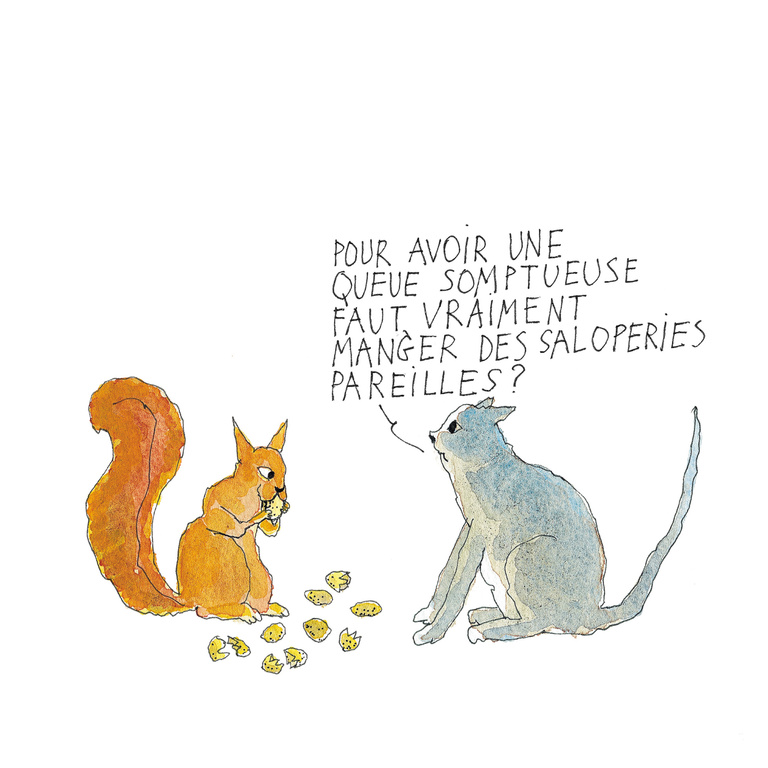 POUR AVOIR UNE
QUEUE SOMPTUEUSE
FAUT VRAIMENT
MANGER DES SALOPERIES
PAREILLES ?